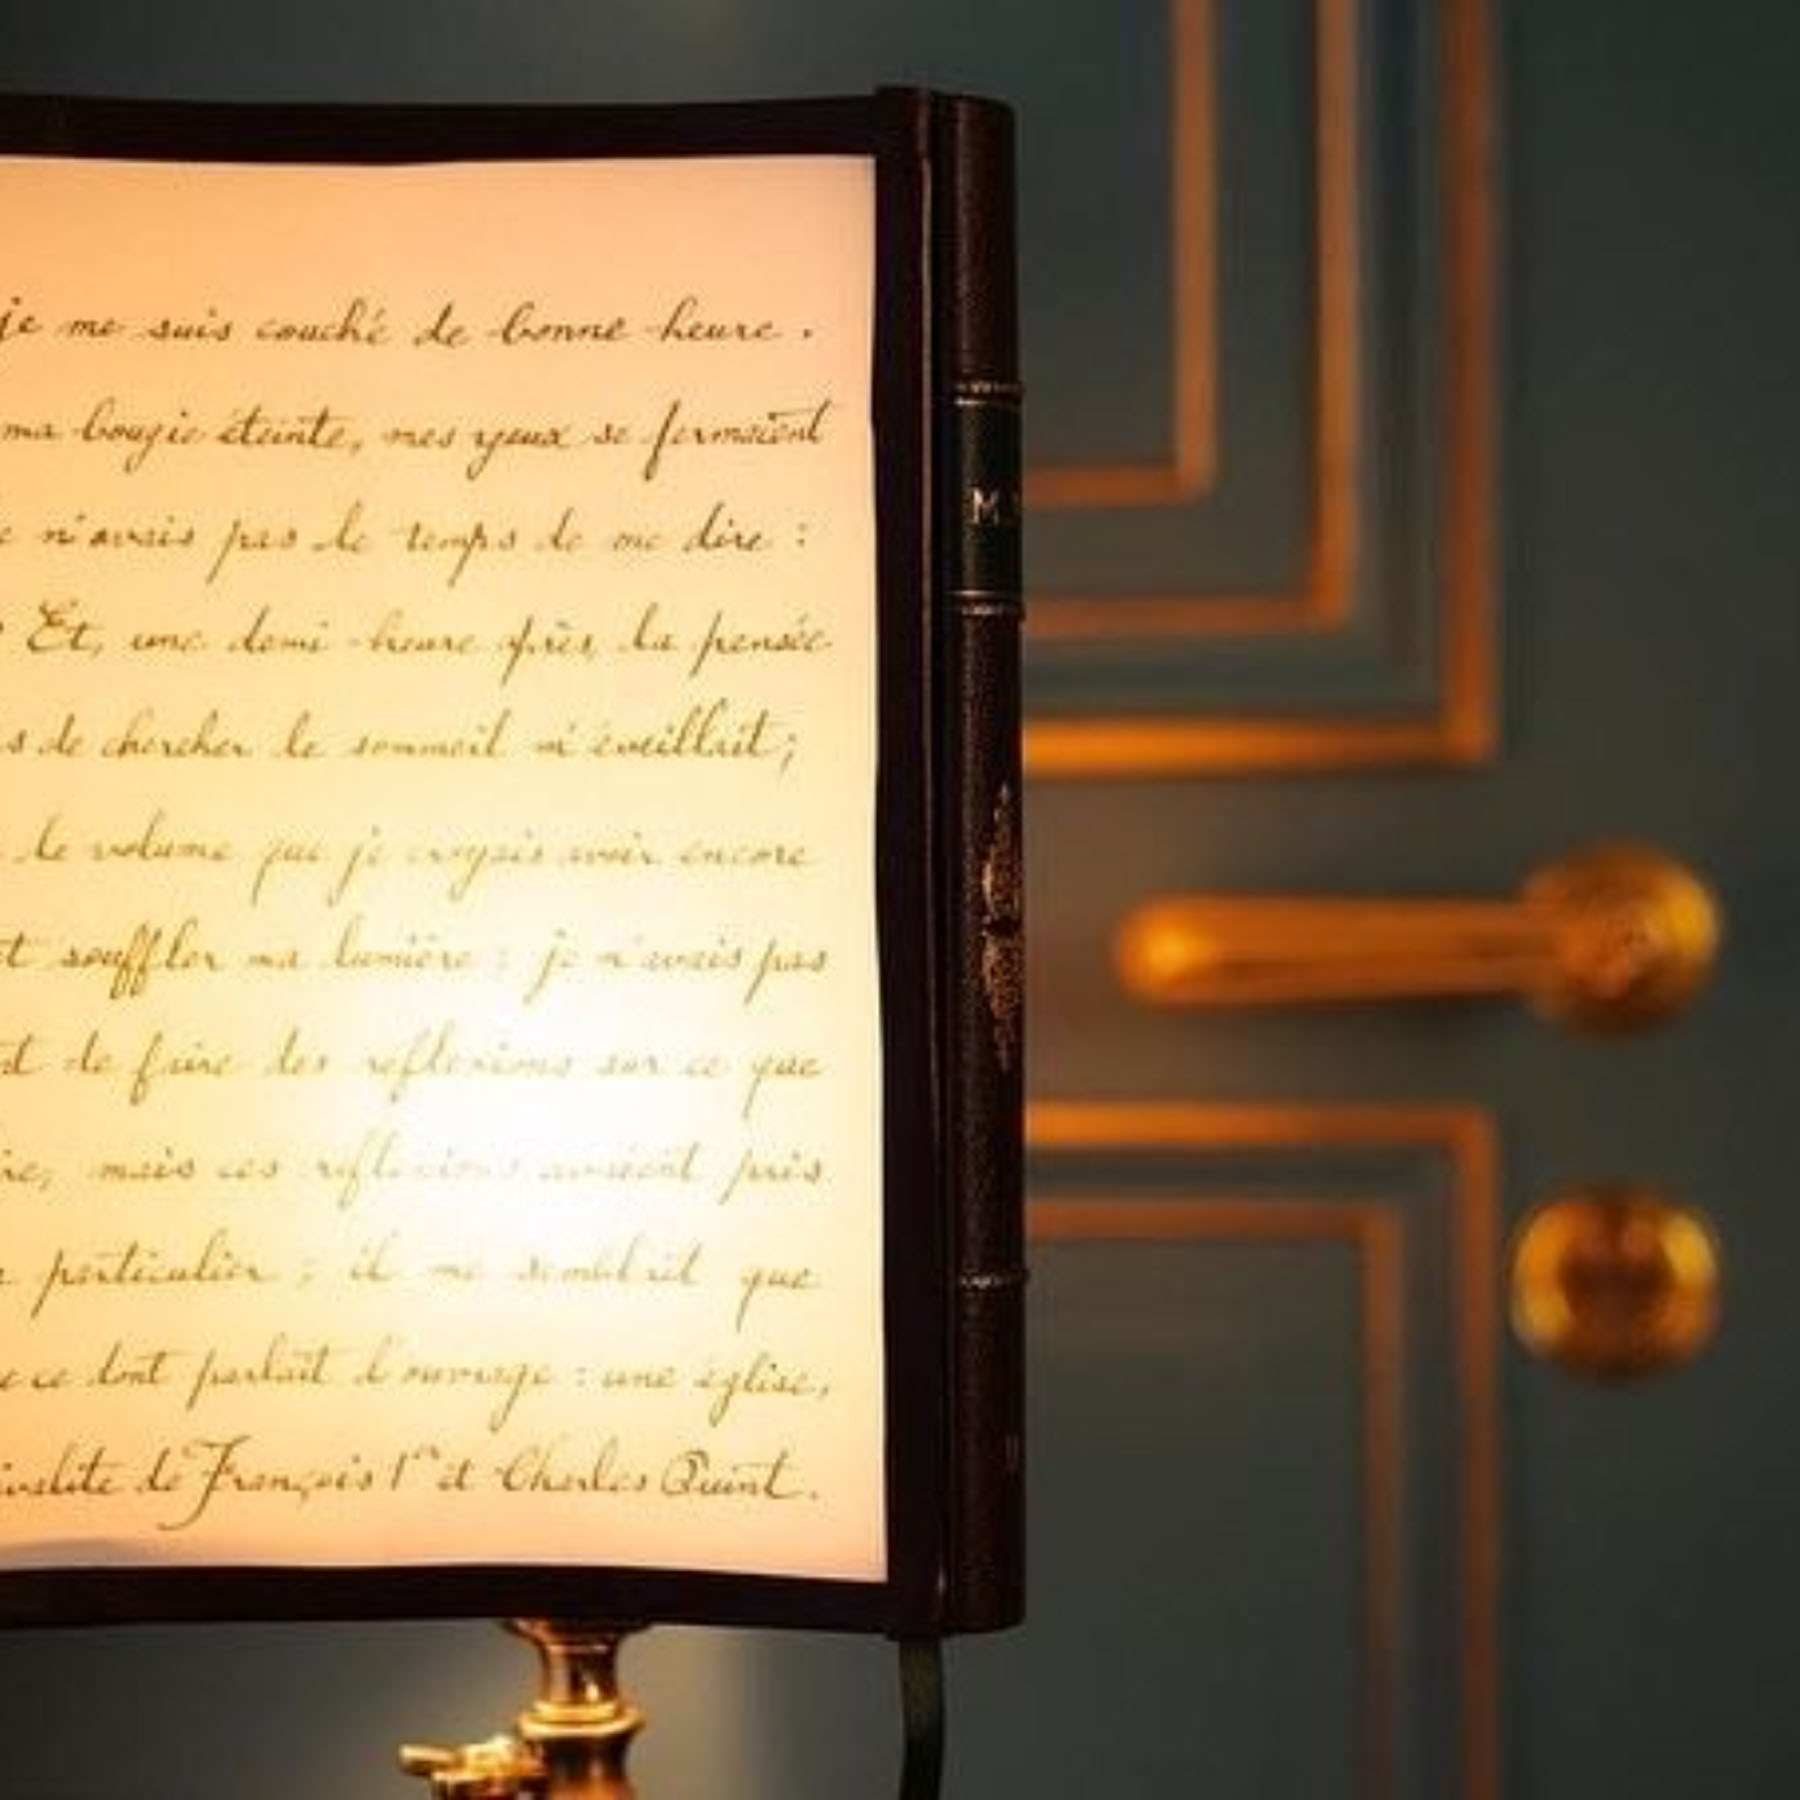 je me suis couché de bonne heure.
ma bougie éteinte, mes yeux se fermaient
n'avais pas le temps de me dire :
Et, une demi-heure après, la pensée
de chercher le sommeil m'éveillait ;
le volume que je croyais avoir encore
et souffler ma lumière : je n'avais pas
de faire des reflexions sur ce que
mais ces reflexions avaient pris
particulier ; il me semblait que
ce dont parlait l'ouvrage : une église,
de François 1er et Charles Quint.
M